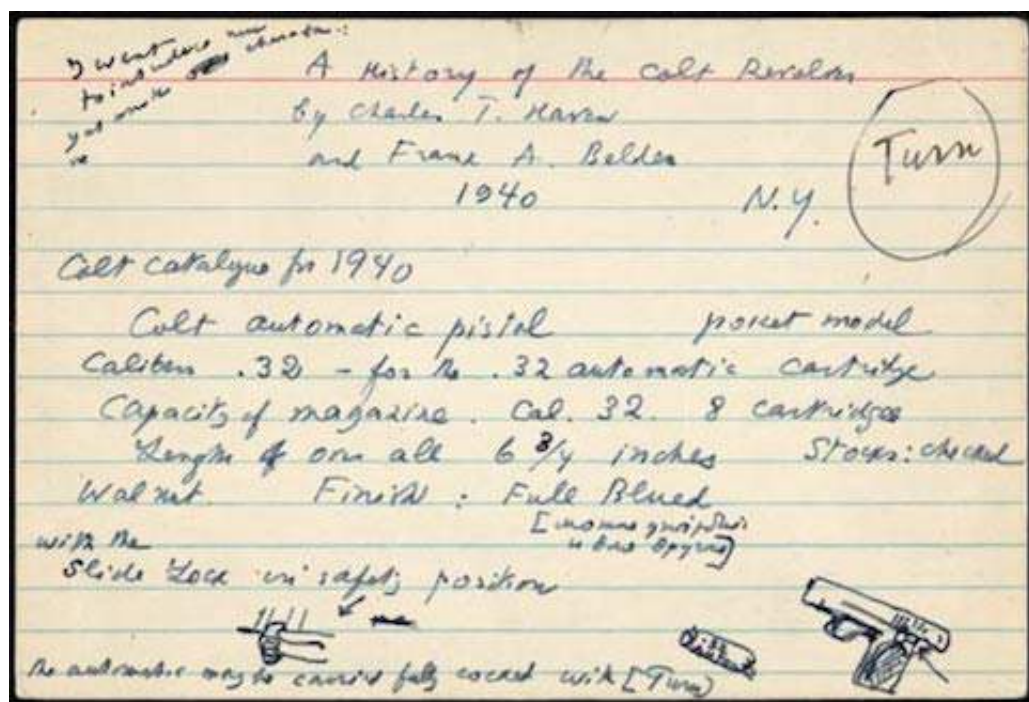 I want
to introduce new
yet another character:
A History of the Colt Revolver
by Charles T. Haven
and Frank A. Belden
1940 N.Y.
Turn
Colt catalogue for 1940
Colt automatic pistol pocket model
Caliber .32 – for the .32 automatic cartridge
Capacity of magazine. Cal. 32. 8 cartridges
Length over all 6 3/4 inches Stocks: checked
Walnut. Finish: Full Blued
with the
Slide Lock in safety position
the automatic may be carried fully cocked with [Turn]